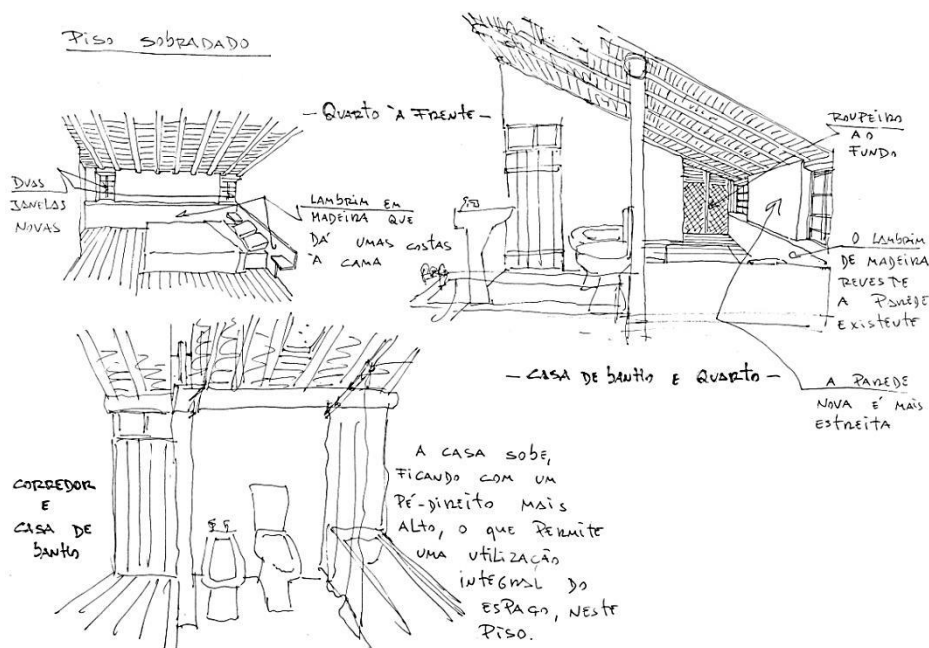 PISO SOBRADADO
- QUARTO À FRENTE -
DUAS
JANELAS
NOVAS
LAMBRIM EM
MADEIRA QUE
DÁ UMAS COSTAS
À CAMA
ROUPEIRO
AO
FUNDO
O LAMBRIM
DE MADEIRA
REVESTE
A PAREDE
EXISTENTE
- CASA DE BANHO E QUARTO -
A PAREDE
NOVA É MAIS
ESTREITA
CORREDOR
E
CASA DE
BANHO
A CASA SOBE,
FICANDO COM UM
PÉ-DIREITO MAIS
ALTO, O QUE PERMITE
UMA UTILIZAÇÃO
INTEGRAL DO
ESPAÇO, NESTE
PISO.